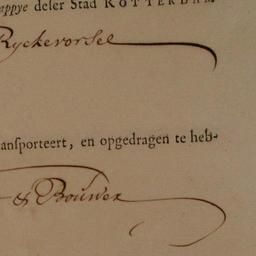 appye deser Stad ROTTERDAM
Ryckevorsel
ansporteert, en opgedragen te heb-
& Bouwer